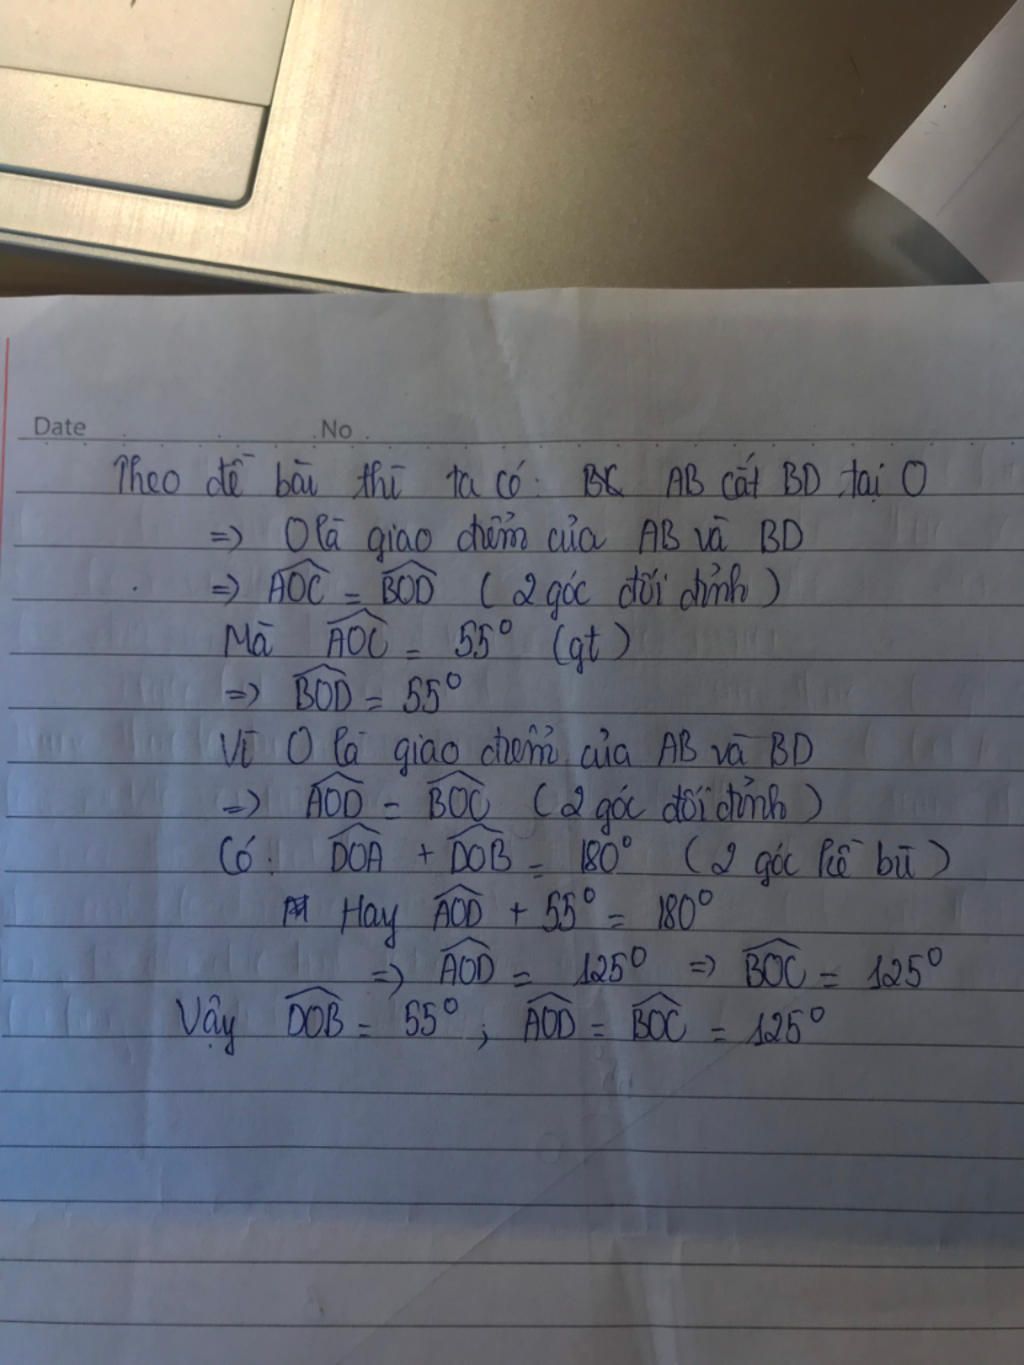 Date No.
Theo đề bài thì ta có: AB cắt BD tại O
=> O là giao điểm của AB và BD
=> AOC = BOD (2 góc đối đỉnh)
Mà AOC = 55° (gt)
=> BOD = 55°
Vì O là giao điểm của AB và BD
=> AOD = BOC (2 góc đối đỉnh)
Có: DOA + DOB = 180° (2 góc kề bù)
Hay AOD + 55° = 180°
=> AOD = 125° => BOC = 125°
Vậy DOB = 55°; AOD = BOC = 125°